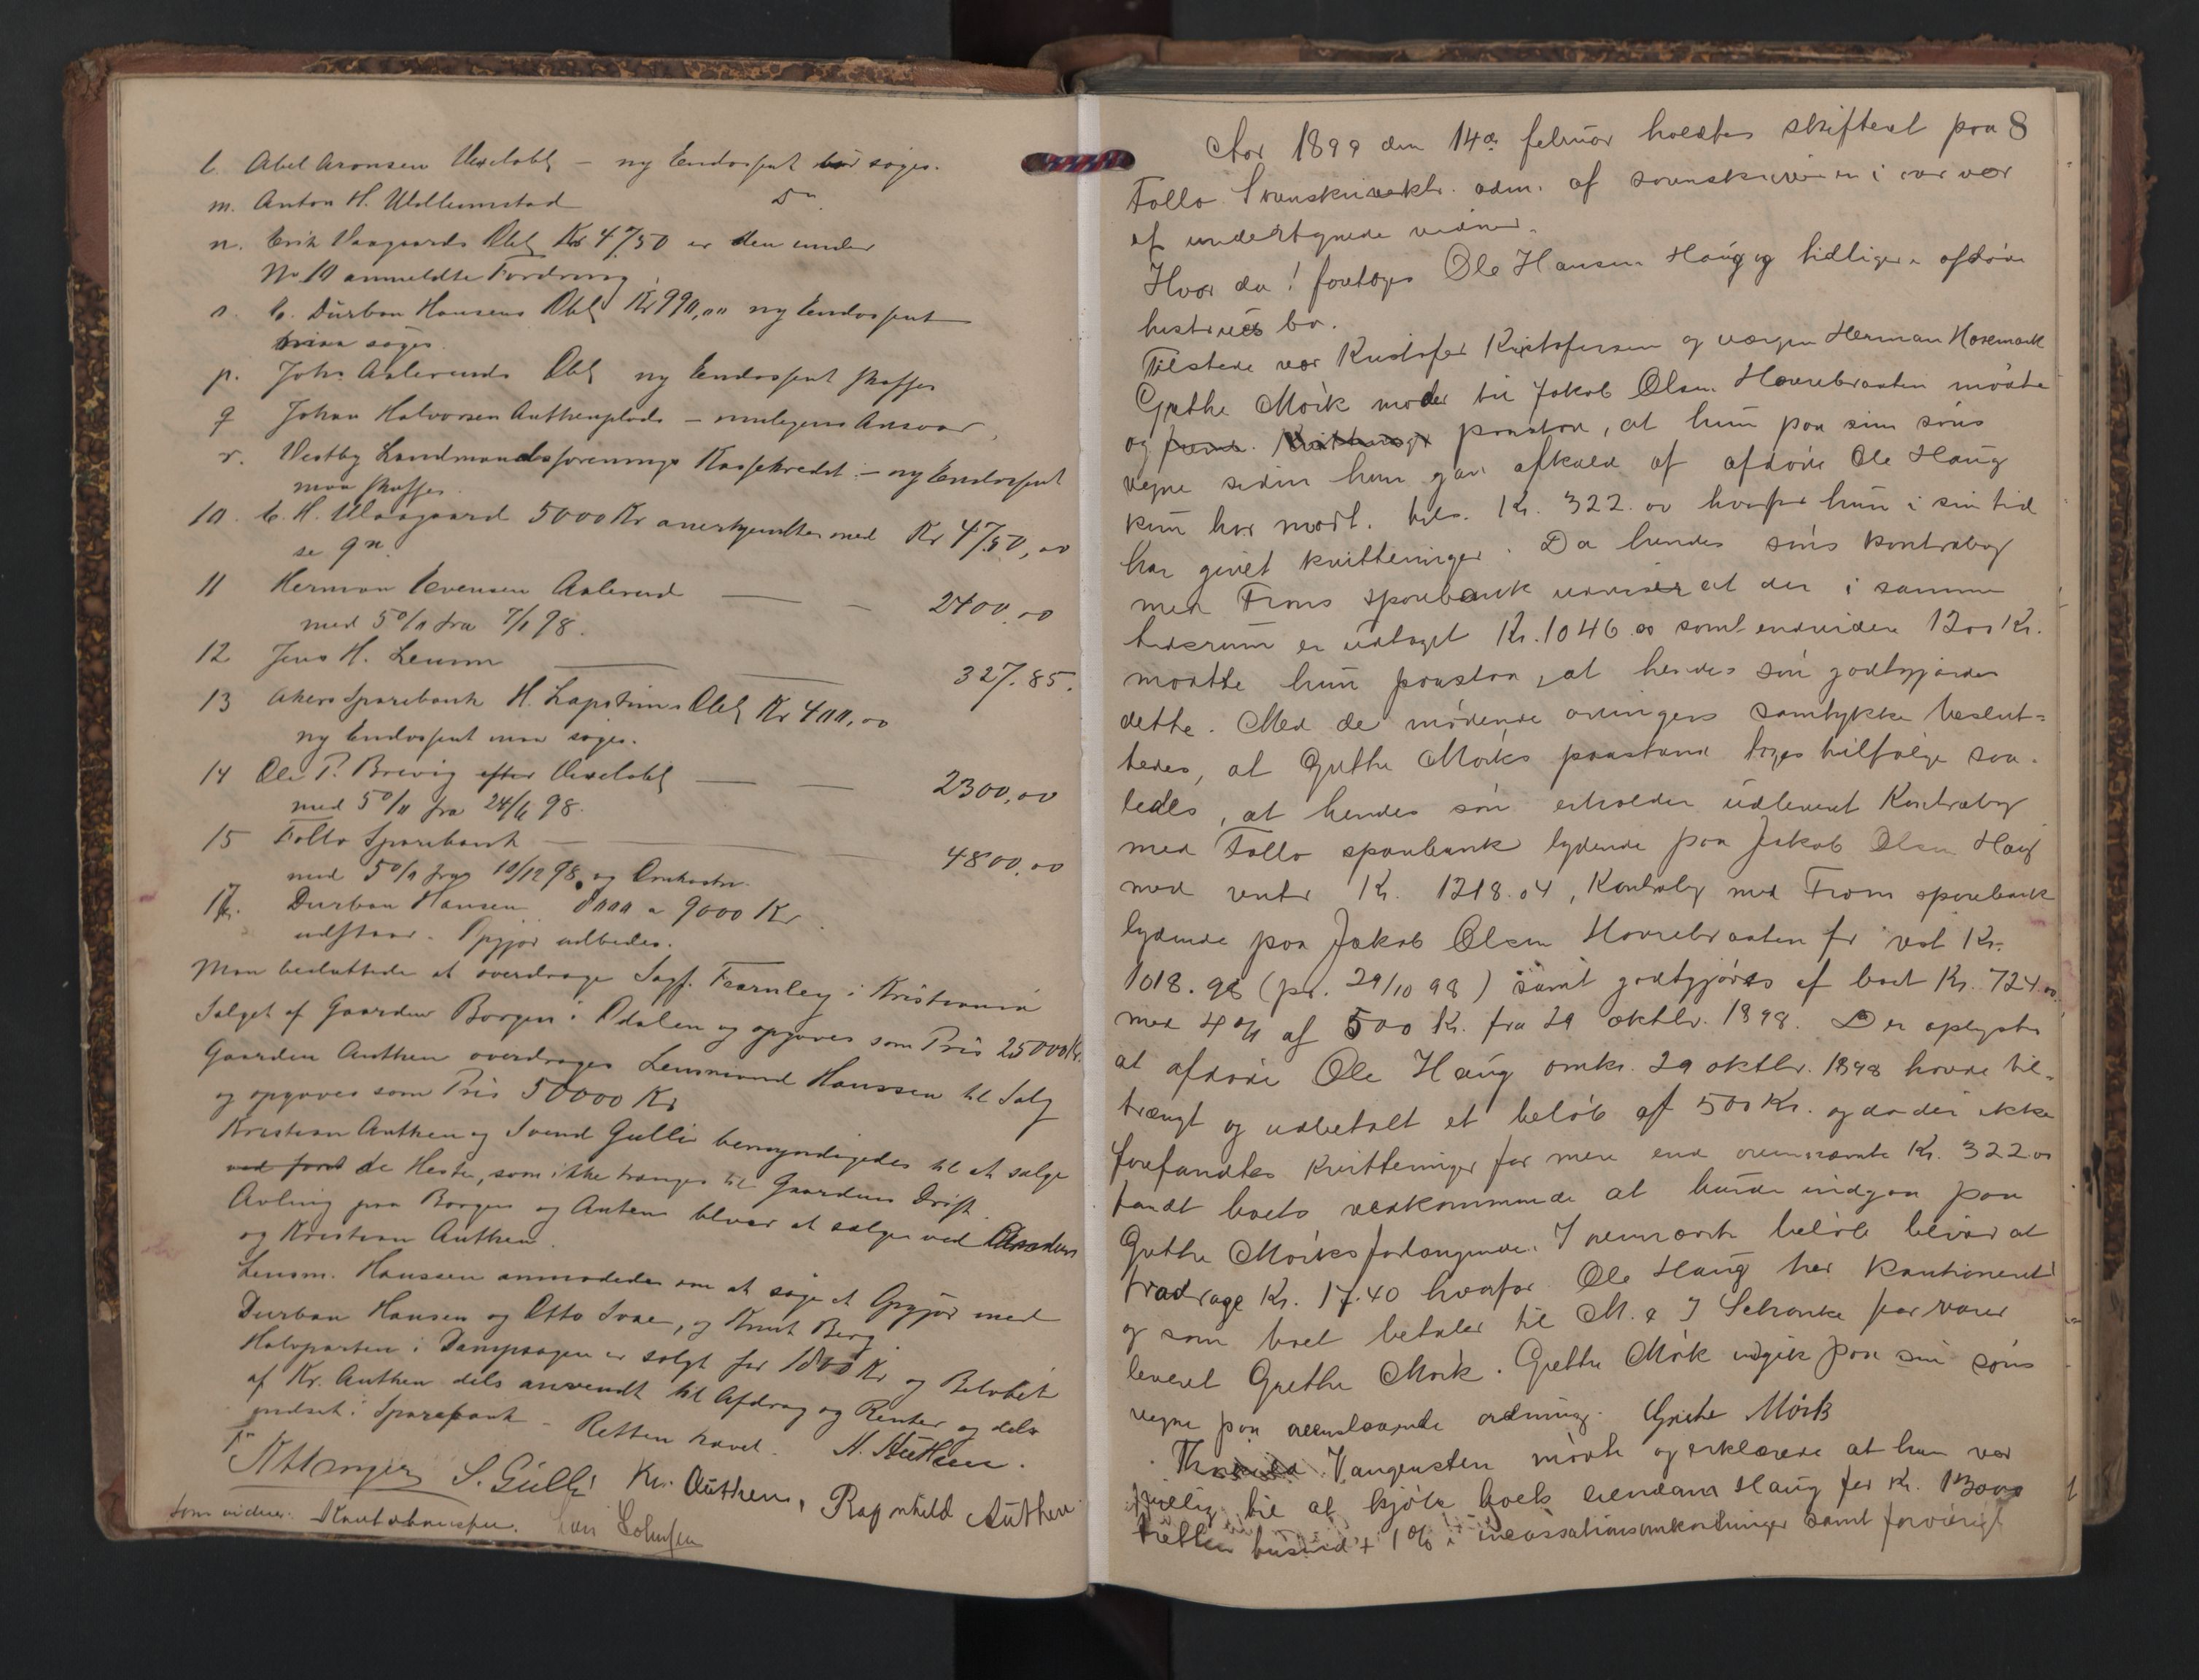 l. Abel Aronsen Vexelobl – ny Endossent bør søges.
m. Anton H. Willumstad Do
n. Erik Vaagaards Obl Kr 4750 er den under
No 10 anmeldte Fordring
o. C. Durban Hansens Obl Kr 990,00 ny Endossent
maa søges.
p. Johs Aslerud Obl ny Endossent skaffes
q Johan Halvorsen Authenplads –
r. Vestby Landmandsforenings Kassekredit – ny Endossent
maa skaffes.
10. E. H. Vaagaard 5000 Kr anerkjendtes med Kr 4750,00
se 9n.
11 Herman Evensen Aslerud — – 2400,00
med 5% fra 7/1 98.
12 Jens H. Lenum — — 327.85.
13 Akers Sparebank H. Obl Kr 400,00
ny Endossent maa søges.
14 Ole P. Brevig efter Vexelobl — — 2300,00
med 5% fra 24/6 98.
15 Follo Sparebank — — 4800,00
med 5% fra 10/12 98. og Omkostn.
17. Durban Hansen 8000 a 9000 Kr.
udstaar. Opgjør udbedes.
Man besluttede at overdrage Sagf. Fearnley i Kristiania
Salget af Gaarden Borgen i Odalen og opgaves som Pris 25000 Kr.
Gaarden Authen overdroges Lensmand Hanssen til Salg
og opgaves som Pris 50000 Kr
Kristian Authen og Svend Gulli bemyndigedes til at sælge
de Heste, som ikke trænges til Gaardens Drift.
Avling paa Borgen og Auten bliver at sælge ved
og Kristian Authen.
Lensm. Hanssen anmodedes om at søge et Opgjør med
Durban Hansen og Otto , og Knut Berg.
Halvparten i Dampsagen er solgt for 1800 Kr og Beløbet
af Kr. Authen dels anvendt til Afdrag og Renter og dels
indsat i Sparebank – Retten hævet. H. Authen.
S. Gulli Kr. Authen, Ragnhild Authen
Som vidner:
8
Aar 1899 den 14de februar holdtes skifteret paa
Follo Sorenskriverktr. adm. af sorenskriveren i overvær
af undertegnede vidner.
Hvor da! foretoges Ole Hansen Haug og tidligere afdøde
hustrues bo.
Tilstede var Kristofer Kristofersen og værgen Herman Horsmark
Grethe Mørk moder til Jakob Olsen Haurebraaten mødte
og paastod, at hun paa sin søns
vegne siden hun gav afkald af afdøde Ole Haug
kun har modt. tils. Kr. 322.00 hvorfor hun i sin tid
har givet kvitteringer. Da hendes søns kontrabog
med Frons sparebank udviser at der i samme
tidsrum er udtaget Kr. 1046.00 samt endvidere 1200 Kr.
maatte hun paastaa, at hendes søn godtgjøres
dette. Med de mødende arvingers samtykke beslut=
tedes, at Grethe Mørks paastand toges tilfølge saa-
ledes, at hendes søn erholder udleveret Kontrabog
med Follo sparebank lydende paa Jakob Olsen Haug
med renter Kr. 1218.04, Kontrabog med Frons sparebank
lydende paa Jakob Olsen Haurebraaten for rest Kr.
1018.98 (pr. 29/10 98) samt godtgjøres af boet Kr. 724.00
med 4% af 500 Kr. fra 29 oktbr. 1898. Der oplystes
at afdøde Ole Haug omkr. 29 oktbr. 1898 havde til-
trængt og udbetalt et beløb af 500 Kr. og da der ikke
forefandtes kvitteringer for mere end ovennævnte Kr. 322.00
fandt boets vedkommende at burde indgaa paa
Grethe Mørks forlangende. I nævnte beløb bliver at
fradrage Kr. 17.40 hvorfor Ole Haug har kautioneret
og som boet betaler til M. & I Schanke for varer
leveret Grethe Mørk. Grethe Mørk indgik paa sin søns
vegne paa ovenstaaende ordning. Grethe Mørk
Vangensten mødte og erklærede at han var
villig til at kjøbe boets eiendom Haug for Kr. 13000
tretten tusind + 1% i incassationsomkostninger samt forøvrigt